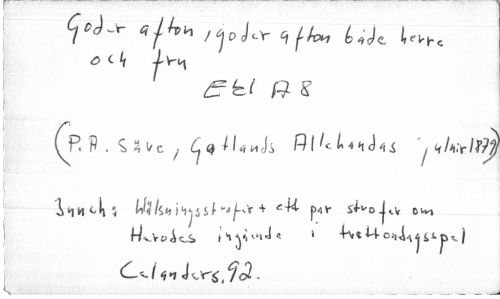 Goder afton, goder afton både herre
och fru
Ekl A 8
(P.A. Säve, Gotlands Allehandas julnr 1879)
Inneh: Hälsningsstrofer + ett par strofer om
Herodes ingående i trettondagsspel
Celander s. 92.